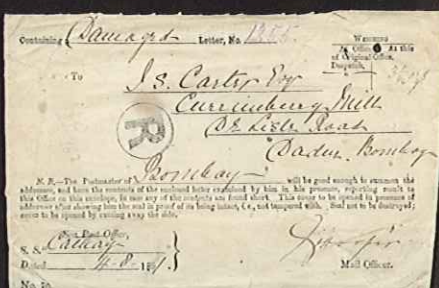 Containing Damaged Letter, No. 1255
At Office At this
of Original Office.
Despatch.
To J. S. Carter Esqr
Currimbhoy Mill
De Lisle Road
R
Dadur Bombay
N. B.—The Postmaster of Bombay will be good enough to summon the
addressee, and have the contents of the enclosed letter examined by him in his presence, reporting result to
this Office on this envelope, in case any of the contents are found short. This cover to be opened in presence of
addressee after showing him the seal in proof of its being intact, i.e., not tampered with. Seal not to be destroyed;
cover to be opened by cutting away the side.
Sea Post Office,
S. S. Cathay
Dated 4-8-
Mail Officer.
No. 30.